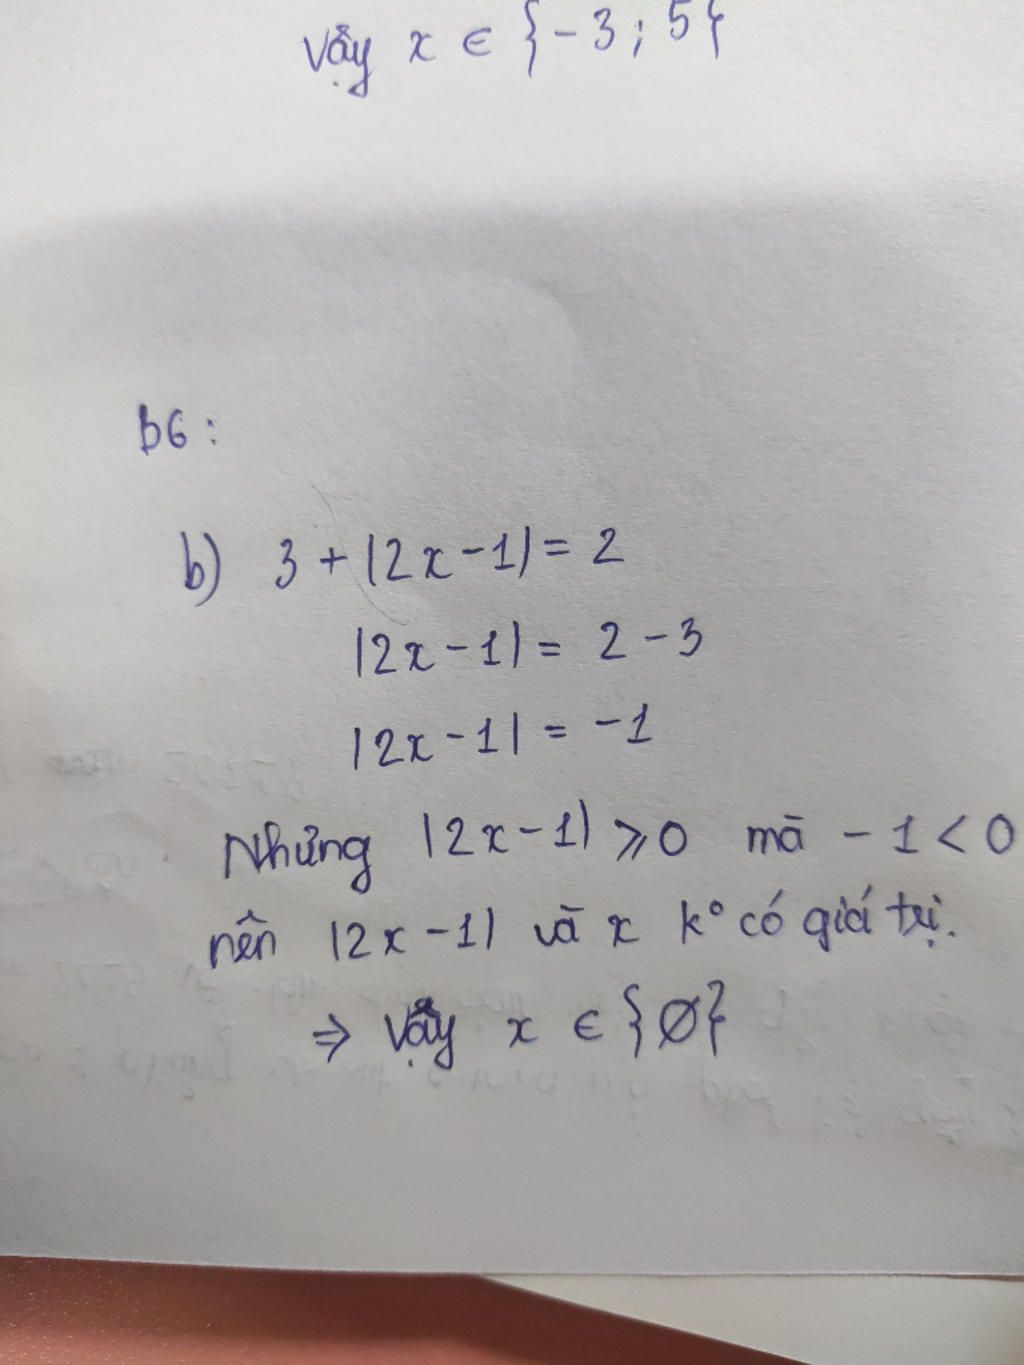 Vậy x ∈ {-3; 5}
b6:
b) 3 + |2x - 1| = 2
|2x - 1| = 2 - 3
|2x - 1| = -1
Nhưng |2x - 1| ⩾ 0 mà - 1 < 0
nên |2x - 1| và x k° có giá trị.
⇒ Vậy x ∈ {∅}